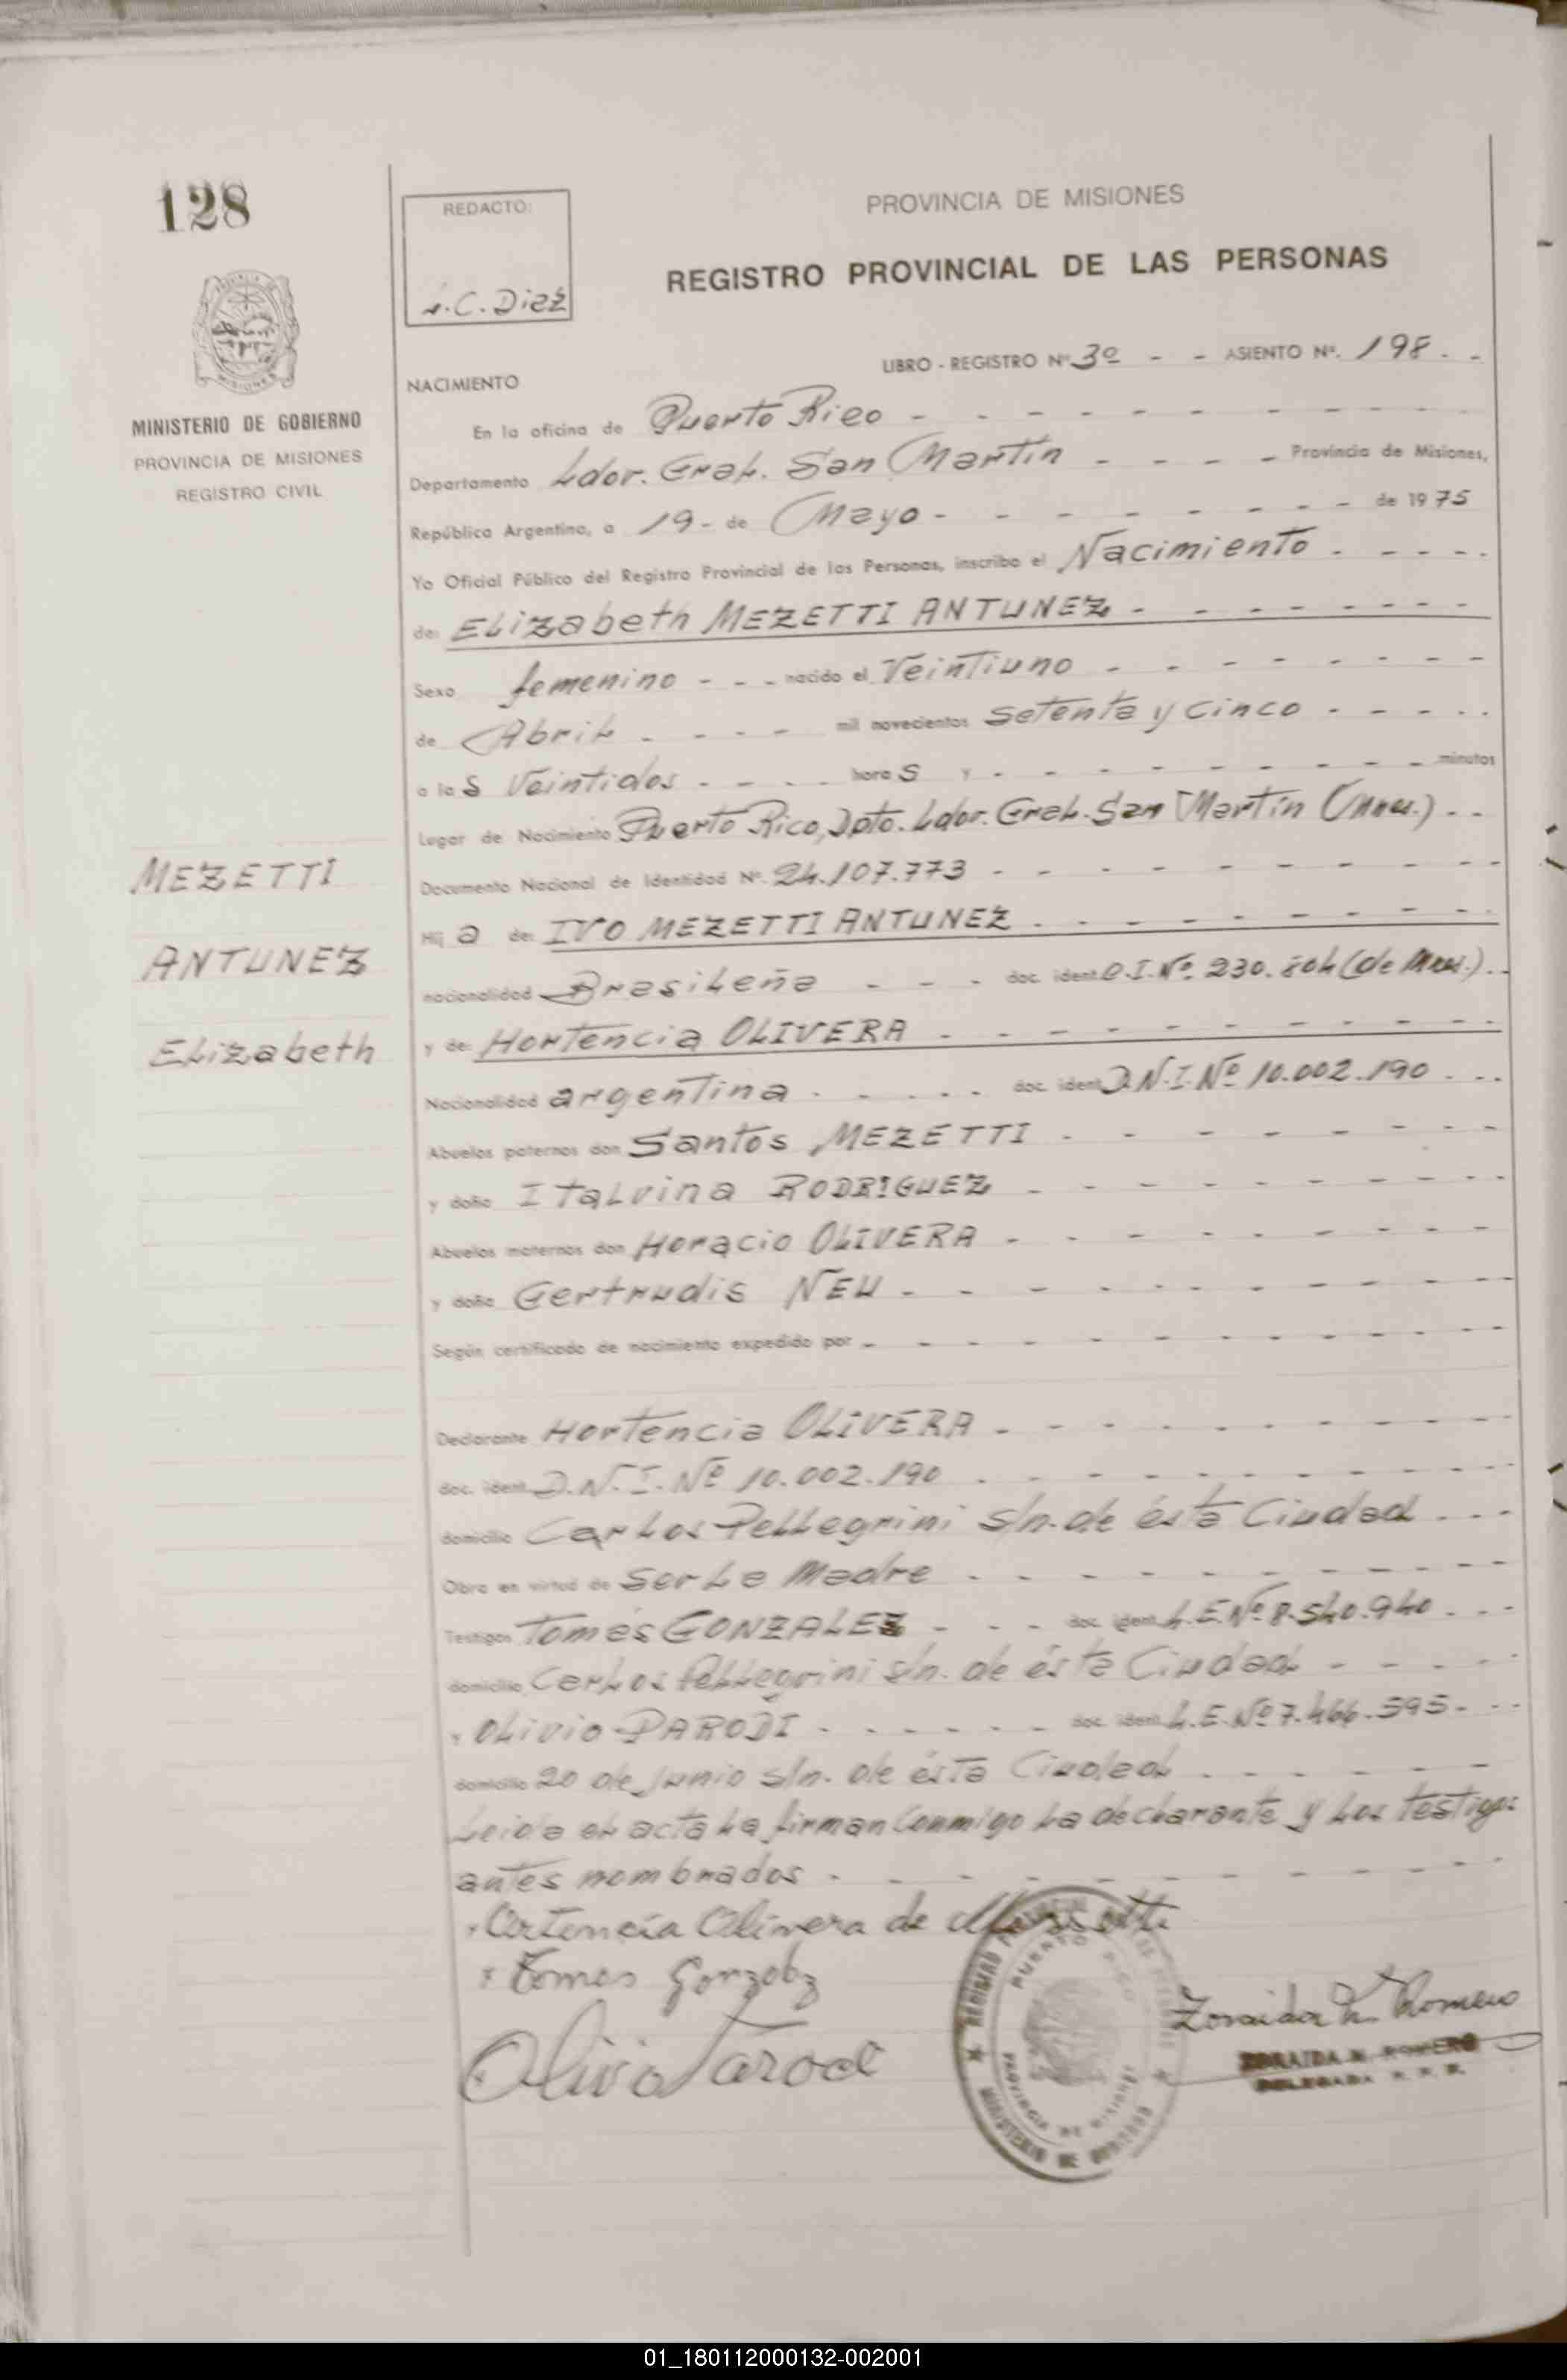 128
MINISTERIO DE GOBIERNO
PROVINCIA DE MISIONES
REGISTRO CIVIL
MEZETTI
ANTUNEZ
Elizabeth
REDACTO:
C. Diez
PROVINCIA DE MISIONES
REGISTRO PROVINCIAL DE LAS PERSONAS
LIBRO - REGISTRO Nº 3º - - ASIENTO Nº. 198. -
NACIMIENTO
En la oficina de Puerto Rico
Departamento Ldor. Gral. San Martín Provincia de Misiones,
República Argentina, a 19 - de Mayo - de 1975
Yo Oficial Público del Registro Provincial de las Personas, inscribo el Nacimiento
de: Elizabeth MEZETTI ANTUNEZ
Sexo femenino - - - nacido el Veintiuno
de Abril mil novecientos setenta y cinco
a las Veintidos horas y minutos
Lugar de Nacimiento Puerto Rico, Dpto. Ldor. Gral. San Martín (Mnes.)
Documento Nacional de Identidad Nº. 24.107.773
Hija de: IVO MEZETTI ANTUNEZ
nacionalidad Brasileña doc. ident. C.I. Nº 230. (de Mnes.)
y de: Hortencia OLIVERA
Nacionalidad argentina doc. ident. D.N.I. Nº 10.002.190
Abuelos paternos don Santos MEZETTI
y doña Italvina RODRIGUEZ
Abuelos maternos don Horacio OLIVERA
y doña Gertrudis NEU
Según certificado de nacimiento expedido por
Declarante Hortencia OLIVERA
doc. ident. D.N.I. Nº 10.002.190
domicilio Carlos Pellegrini s/n. de ésta Ciudad
Obra en virtud de ser la Madre
Testigos Tomás GONZALEZ doc. ident. L.E. Nº 8.540.940
domicilio Carlos Pellegrini s/n. de ésta Ciudad
y Olivio PARODI doc. ident. L.E. Nº 7.466.595
domicilio 20 de Junio s/n. de ésta Ciudad
Leida el acta la firman Conmigo la declarante y los testigos
antes nombrados
Ortencia Olivera de
Tomas Gonzalez
Olivio Parodi
REGISTRO PROVINCIAL DE LAS PERSONAS
PUERTO RICO
PROVINCIA DE MISIONES
MINISTERIO DE GOBIERNO
Zoraida N. Romero
ZORAIDA N. ROMERO
DELEGADA R. P. P.
01_180112000132-002001